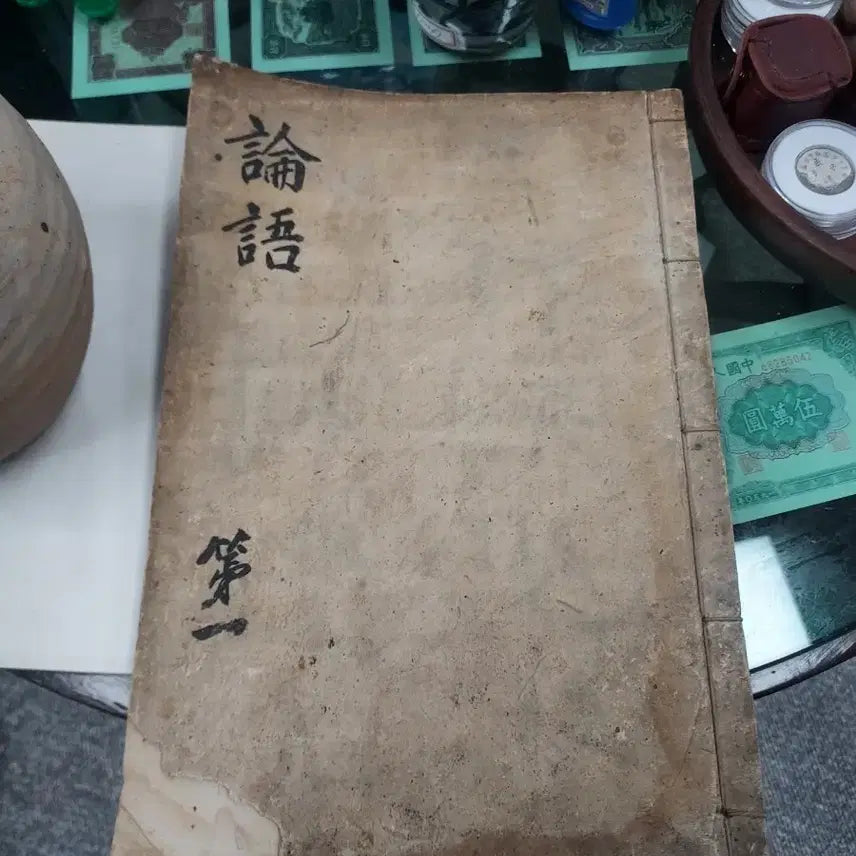 論語
第一
中國
43285042
伍萬圓